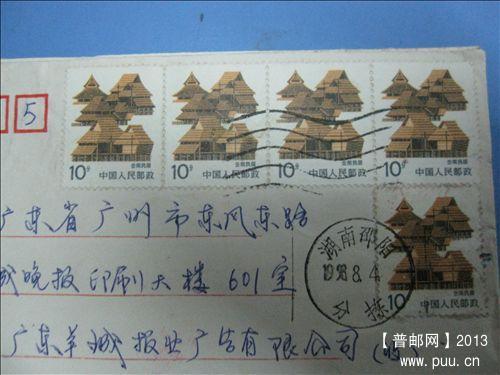 5
10分 云南民居 中国人民邮政
10分 云南民居 中国人民邮政
10分 云南民居 中国人民邮政
10分 云南民居 中国人民邮政
10
广东省广州市东风东路
城晚报印刷大楼 601室
广东羊城报业广告有限公司
湖南邵阳
1998.8.4
【普邮网】2013
www.puu.cn